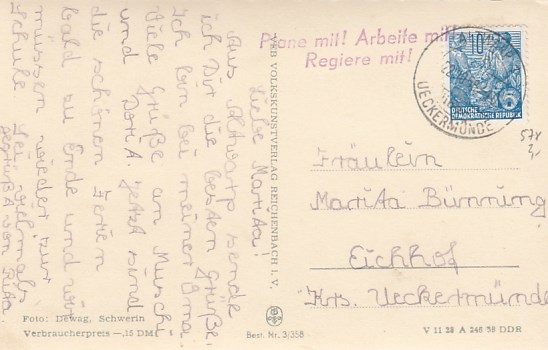 Liebe Martita!
Aus Altwarp sende
ich Dir die besten Grüße.
Ich bin bei meiner Oma.
Viele Grüße an Muschi
und Dori A. Jetzt sind
die schönen Ferien
bald zu Ende und wir
müssen wieder zur
Schule. Sei vielmals
gegrüßt von Rita.
Foto: Dewag, Schwerin
Verbraucherpreis —,15 DM
VEB VOLKSKUNSTVERLAG REICHENBACH I. V.
Best. Nr. 3/358
Plane mit! Arbeite mit!
Regiere mit!
10
DEUTSCHE
DEMOKRATISCHE REPUBLIK
UECKERMÜNDE
578
Fräulein
Martita Bünning
Eichhof
Krs. Ueckermünde
V 11 28 A 246/58 DDR